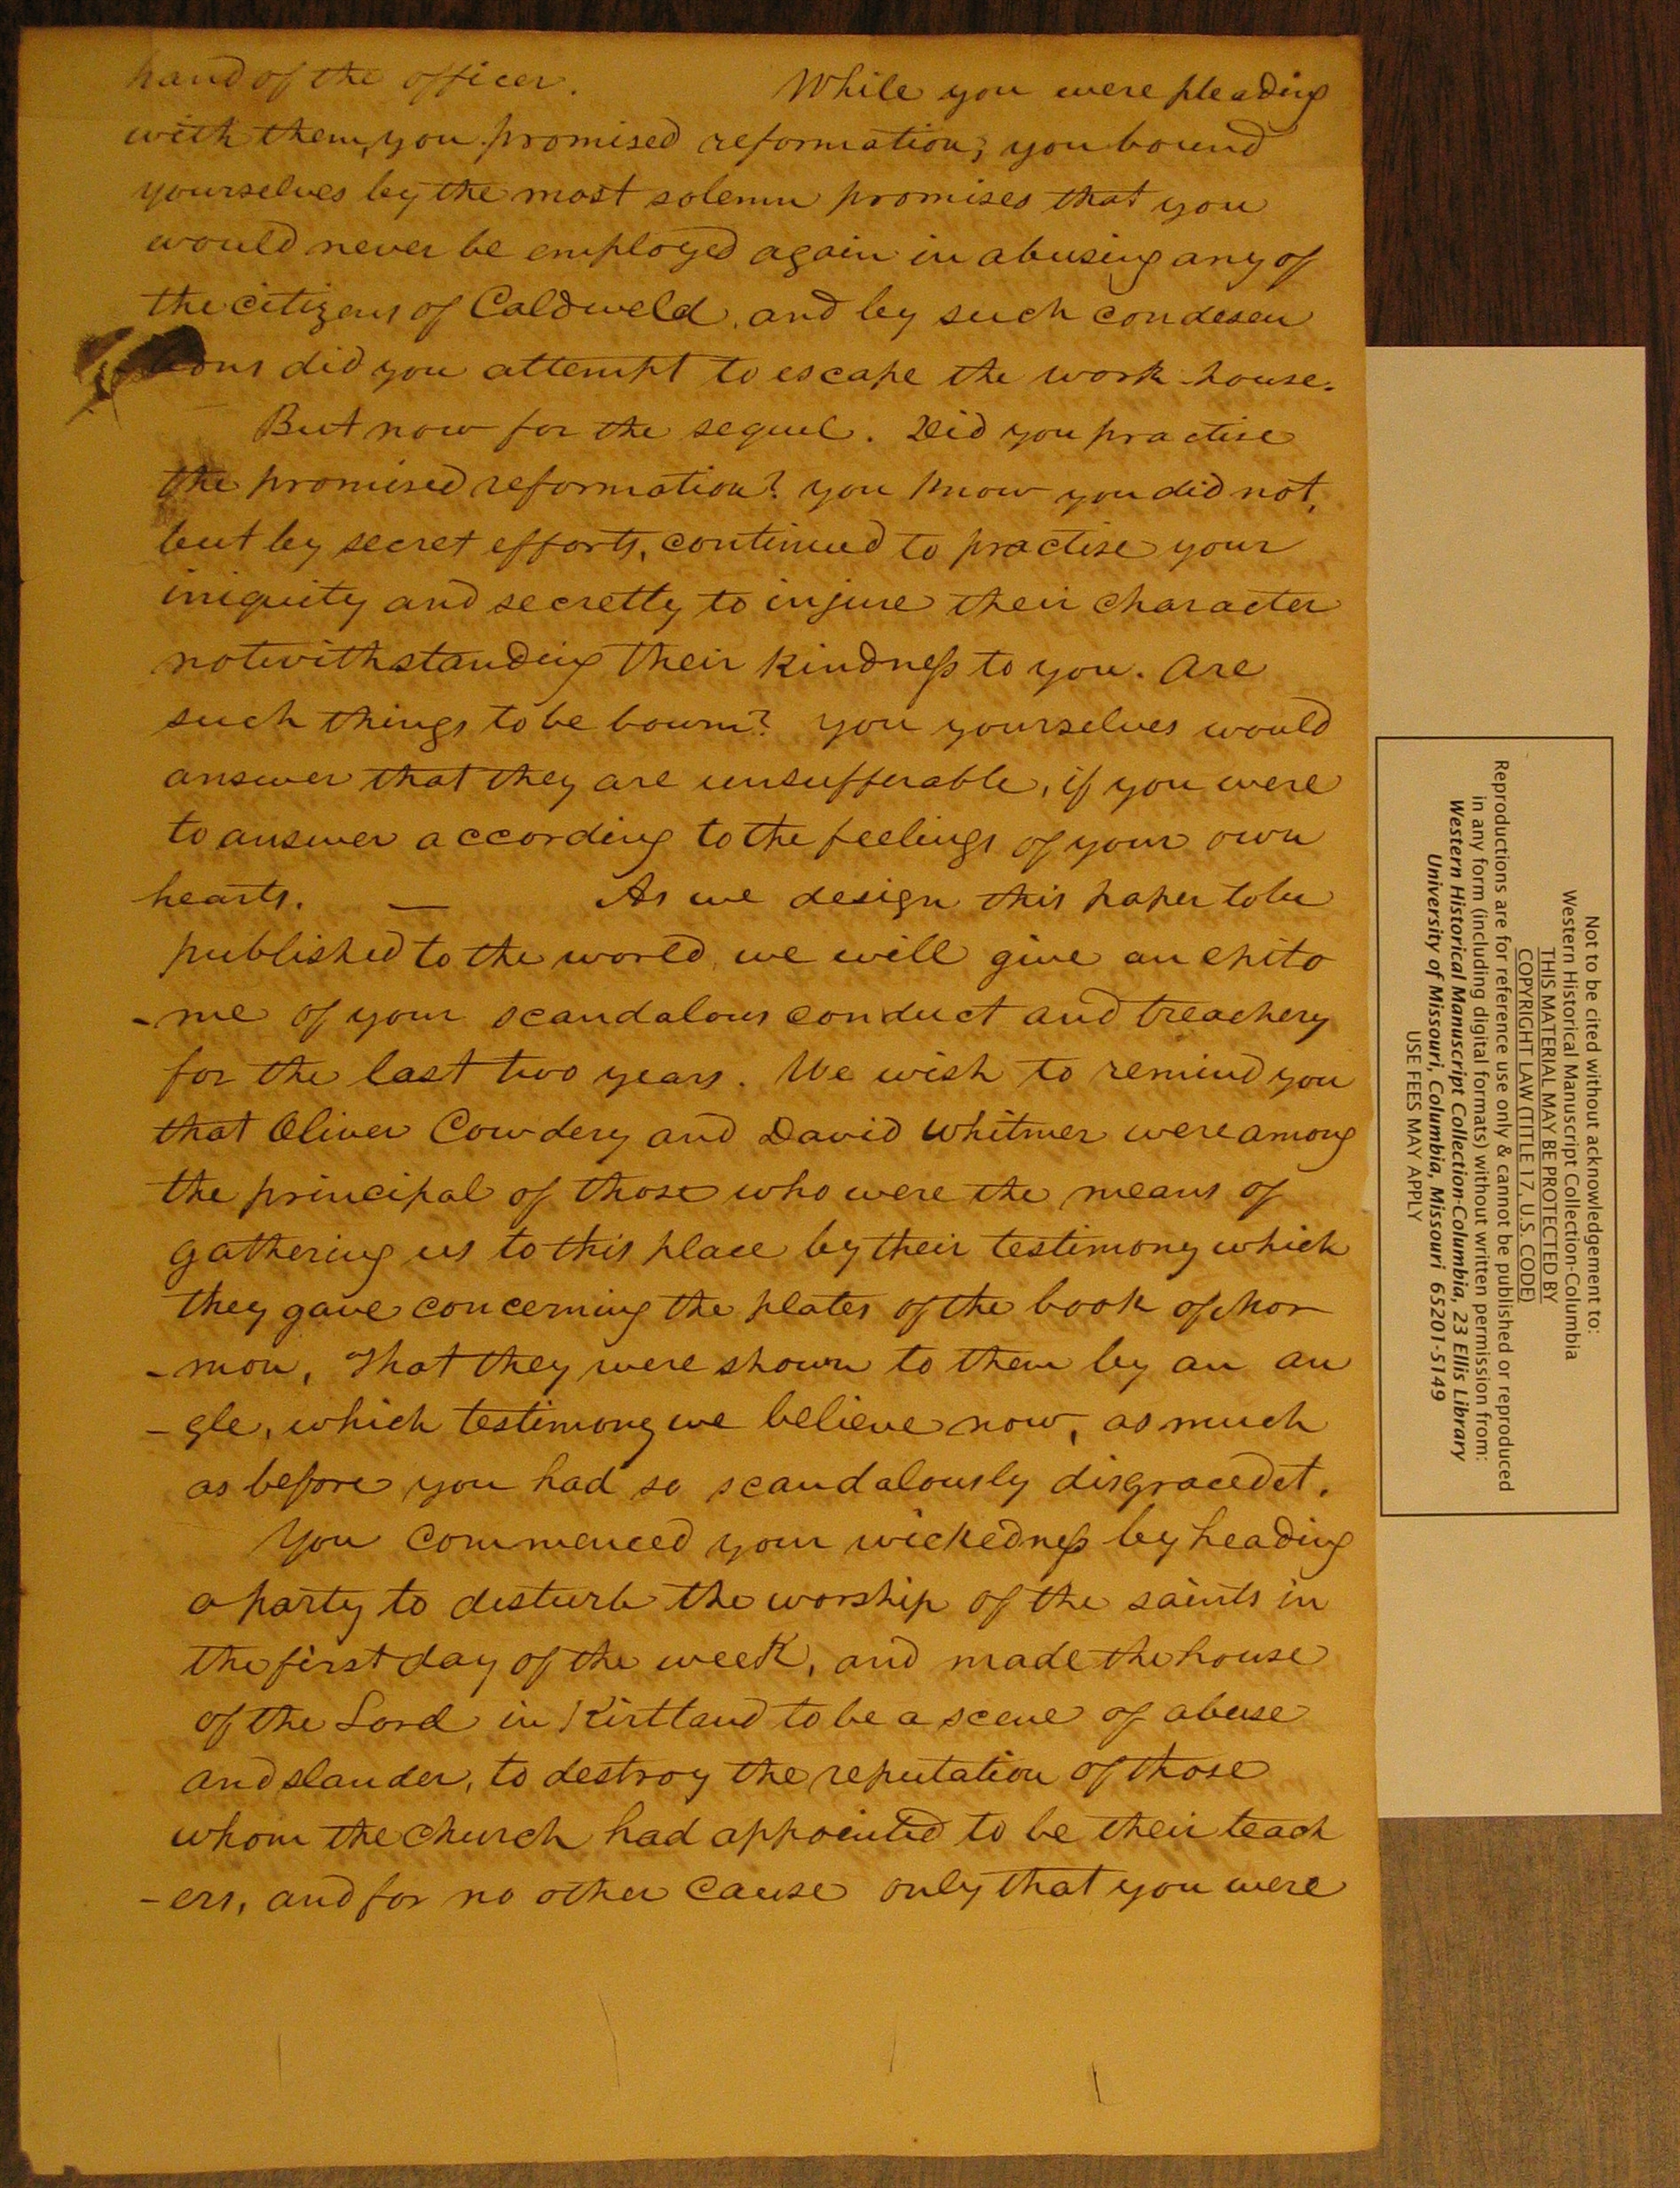 hand of the officer. While you were pleading
with them, you promised reformation; you bound
yourselves by the most solemn promises that you
would never be employed again in abusing any of
the citizens of Caldweld, and by such condesen
did you attempt to escape the work house.
But now for the sequel. Did you practise
the promised reformation? you know you did not,
but by secret efforts, continued to practise your
iniquity and secretty to injure their character
notwithstanding their kindness to you. Are
such things to be bourn? you yourselves would
answer that they are unsufferable, if you were
to answer according to the feelings of your own
hearts. — As we design this paper to be
published to the world, we will give an epito
-me of your scandalous conduct and treachery
for the last two years. We wish to remind you
that Oliver Cowdery and David Whitmer were among
the principal of those who were the means of
gathering us to this place by their testimony which
they gave concerning the plates of the book of Mor
-mon, That they were shown to them by an an
-gle, which testimony we believe now, as much
as before you had so scandalously disgraced it.
You commenced your wickedness by heading
a party to desturb the worship of the saints in
the first day of the week, and made the house
of the Lord in Kirtland to be a scene of abuse
and slander, to destroy the reputation of those
whom the church had appointed to be their teach
-ers, and for no other cause only that you were
Not to be cited without acknowledgement to:
Western Historical Manuscript Collection-Columbia
THIS MATERIAL MAY BE PROTECTED BY
COPYRIGHT LAW (TITLE 17, U.S. CODE)
Reproductions are for reference use only & cannot be published or reproduced
in any form (including digital formats) without written permission from:
Western Historical Manuscript Collection-Columbia, 23 Ellis Library
University of Missouri, Columbia, Missouri 65201-5149
USE FEES MAY APPLY